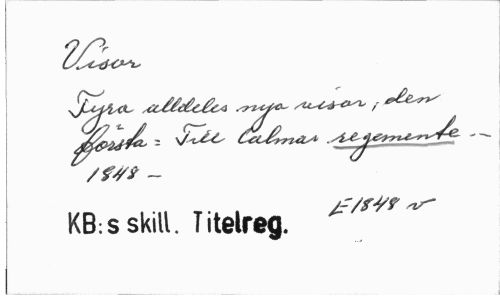 Visor
Fyra alldeles nya visor, den
första = Till Calmar regemente. —
1848 —
E 1848 v
KB:s skill. Titelreg.